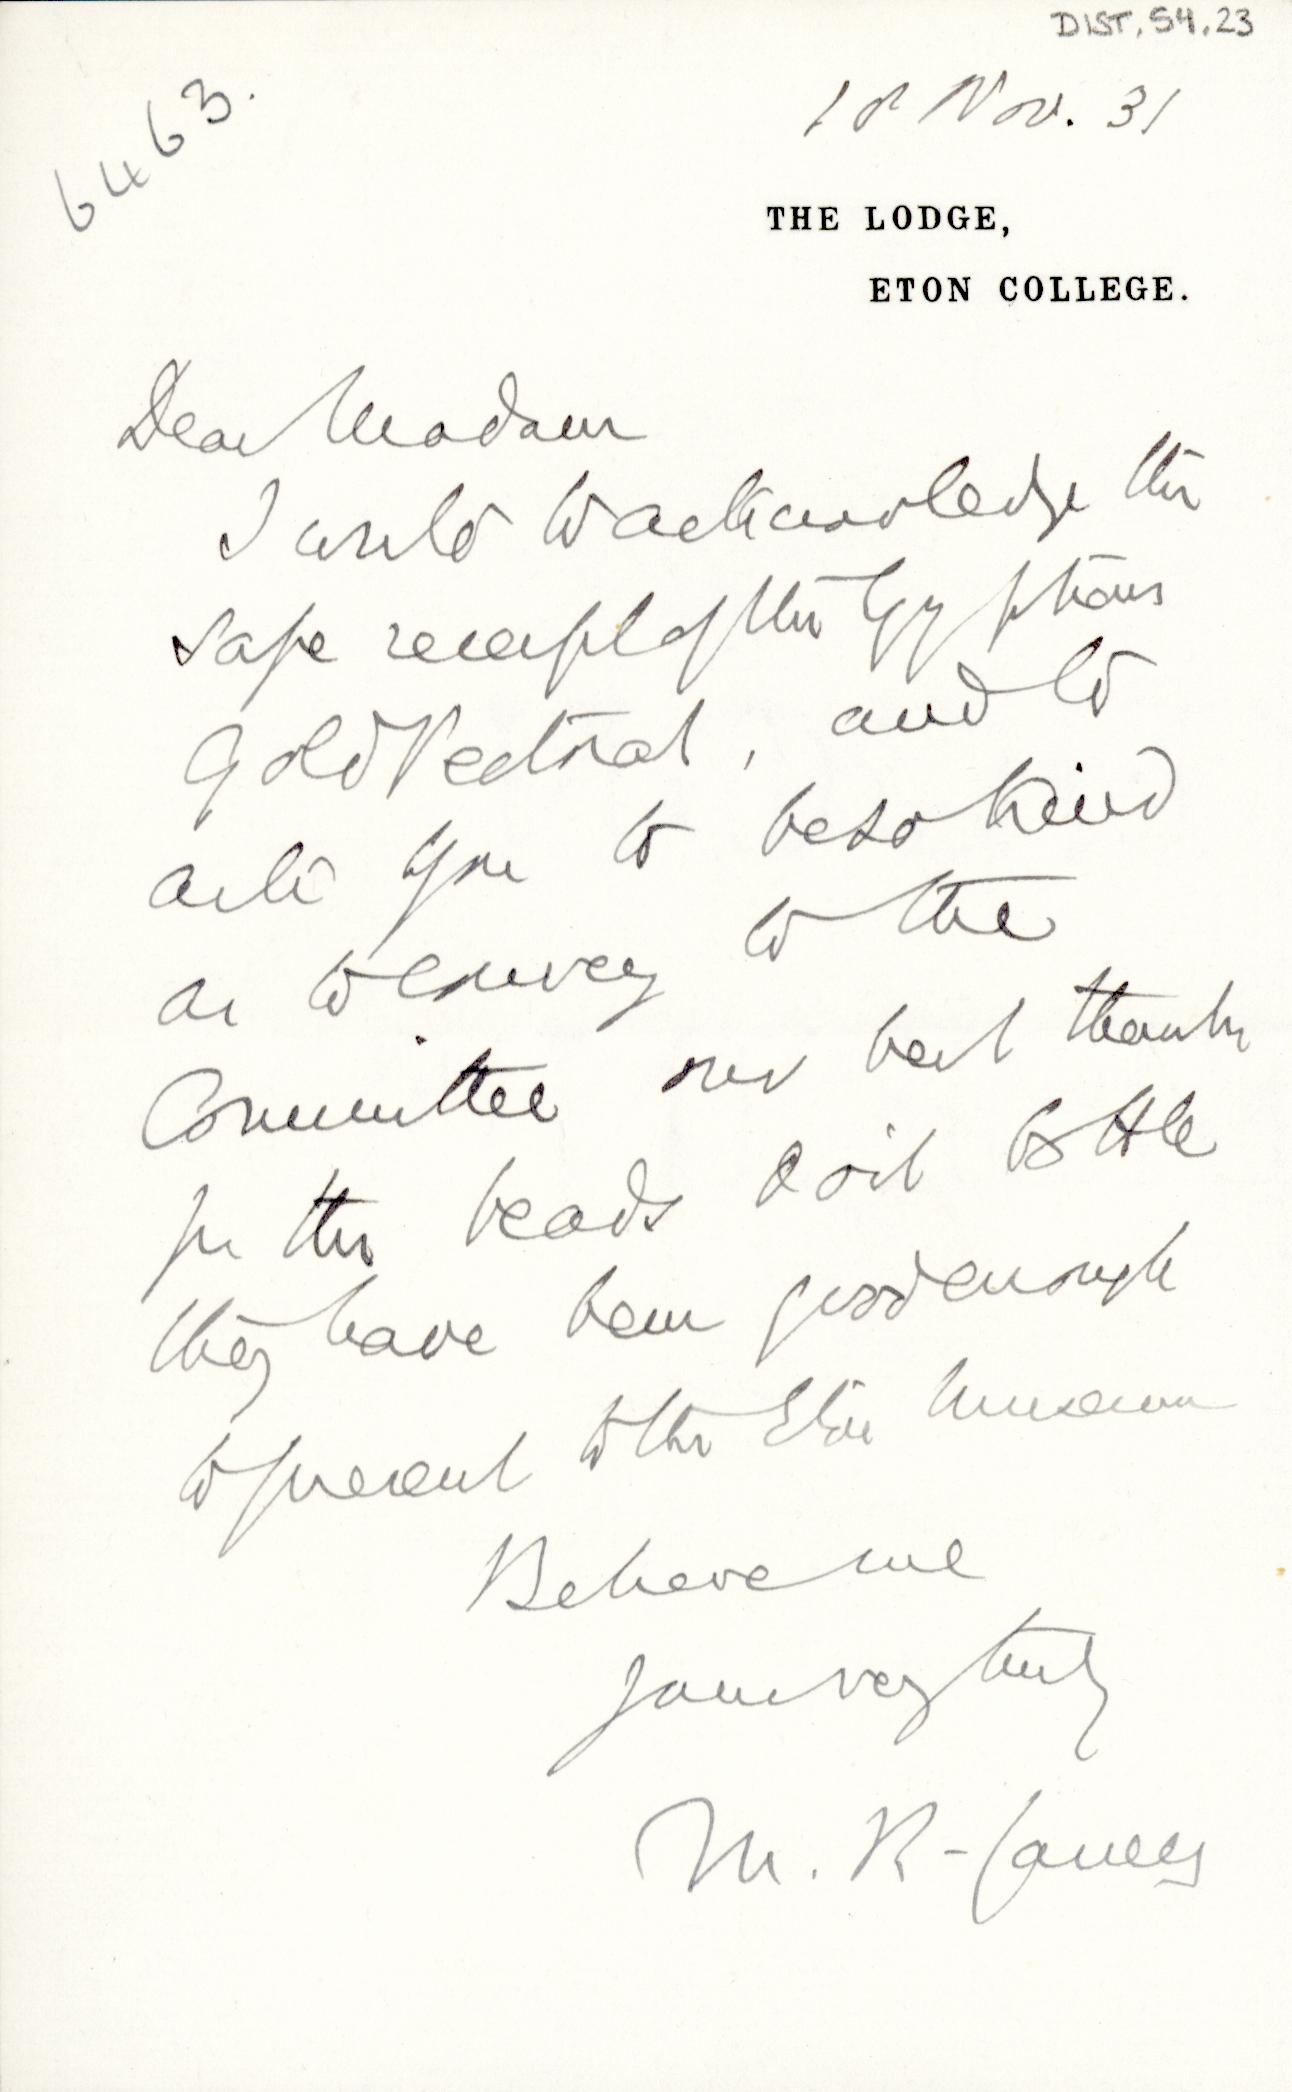 DIST. 54.23
6463.
18 Nov. 31
THE LODGE,
ETON COLLEGE.
Dear Madam
I write to acknowledge the
safe receipt of the Egyptians
Gold Pectoral, and to
ask you to be so kind
as to convey to the
Committee our best thanks
for the beads & oil bottle
they have been good enough
to present to the Eton Museum
Believe me
yours very truly
M. R. James